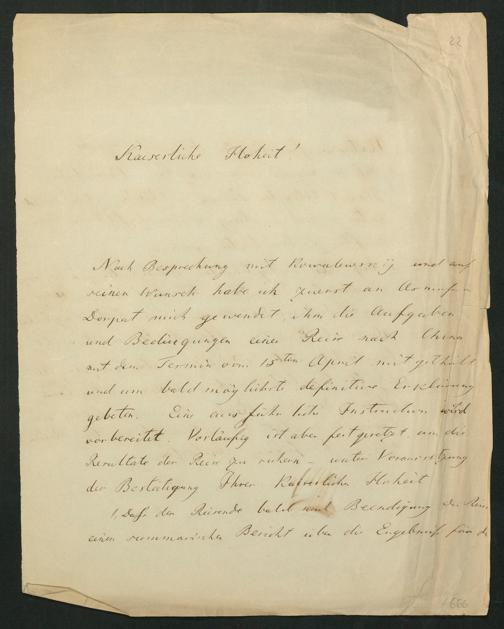 22
Kaiserliche Hoheit!
Nach Besprechung mit Kowalewskij und auf
seinen Wunsch habe ich zuerst an
Dorpat mich gewendet, ihm die Aufgaben
und Bedingungen einer Reise nach China
mit dem Termin vom 15ten April mitgetheilt
und um bald möglichste definitive Erklärung
gebeten. Eine ausführliche Instruction wird
vorbereitet. Vorläufig ist aber festgesetzt, um die
Resultate der Reise zu sichern – unter Voraussetzung
der Bestätigung Ihrer Kaiserlichen Hoheit
1, Daß der Reisende bald nach Beendigung der Reise
einen summarischen Bericht über die Ergebnisse für d